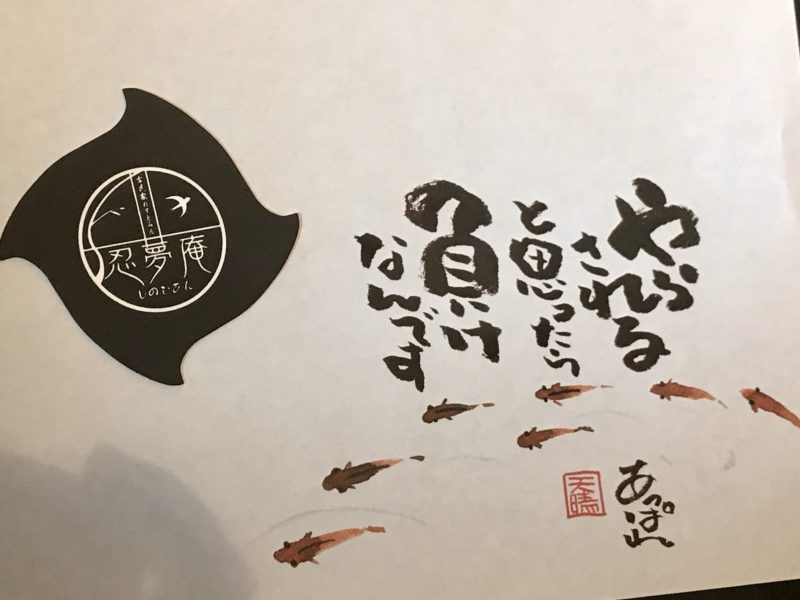 やらされる
と思ったら
の負け
なんです
あっぱれ
天晴
忍夢庵
しのむあん